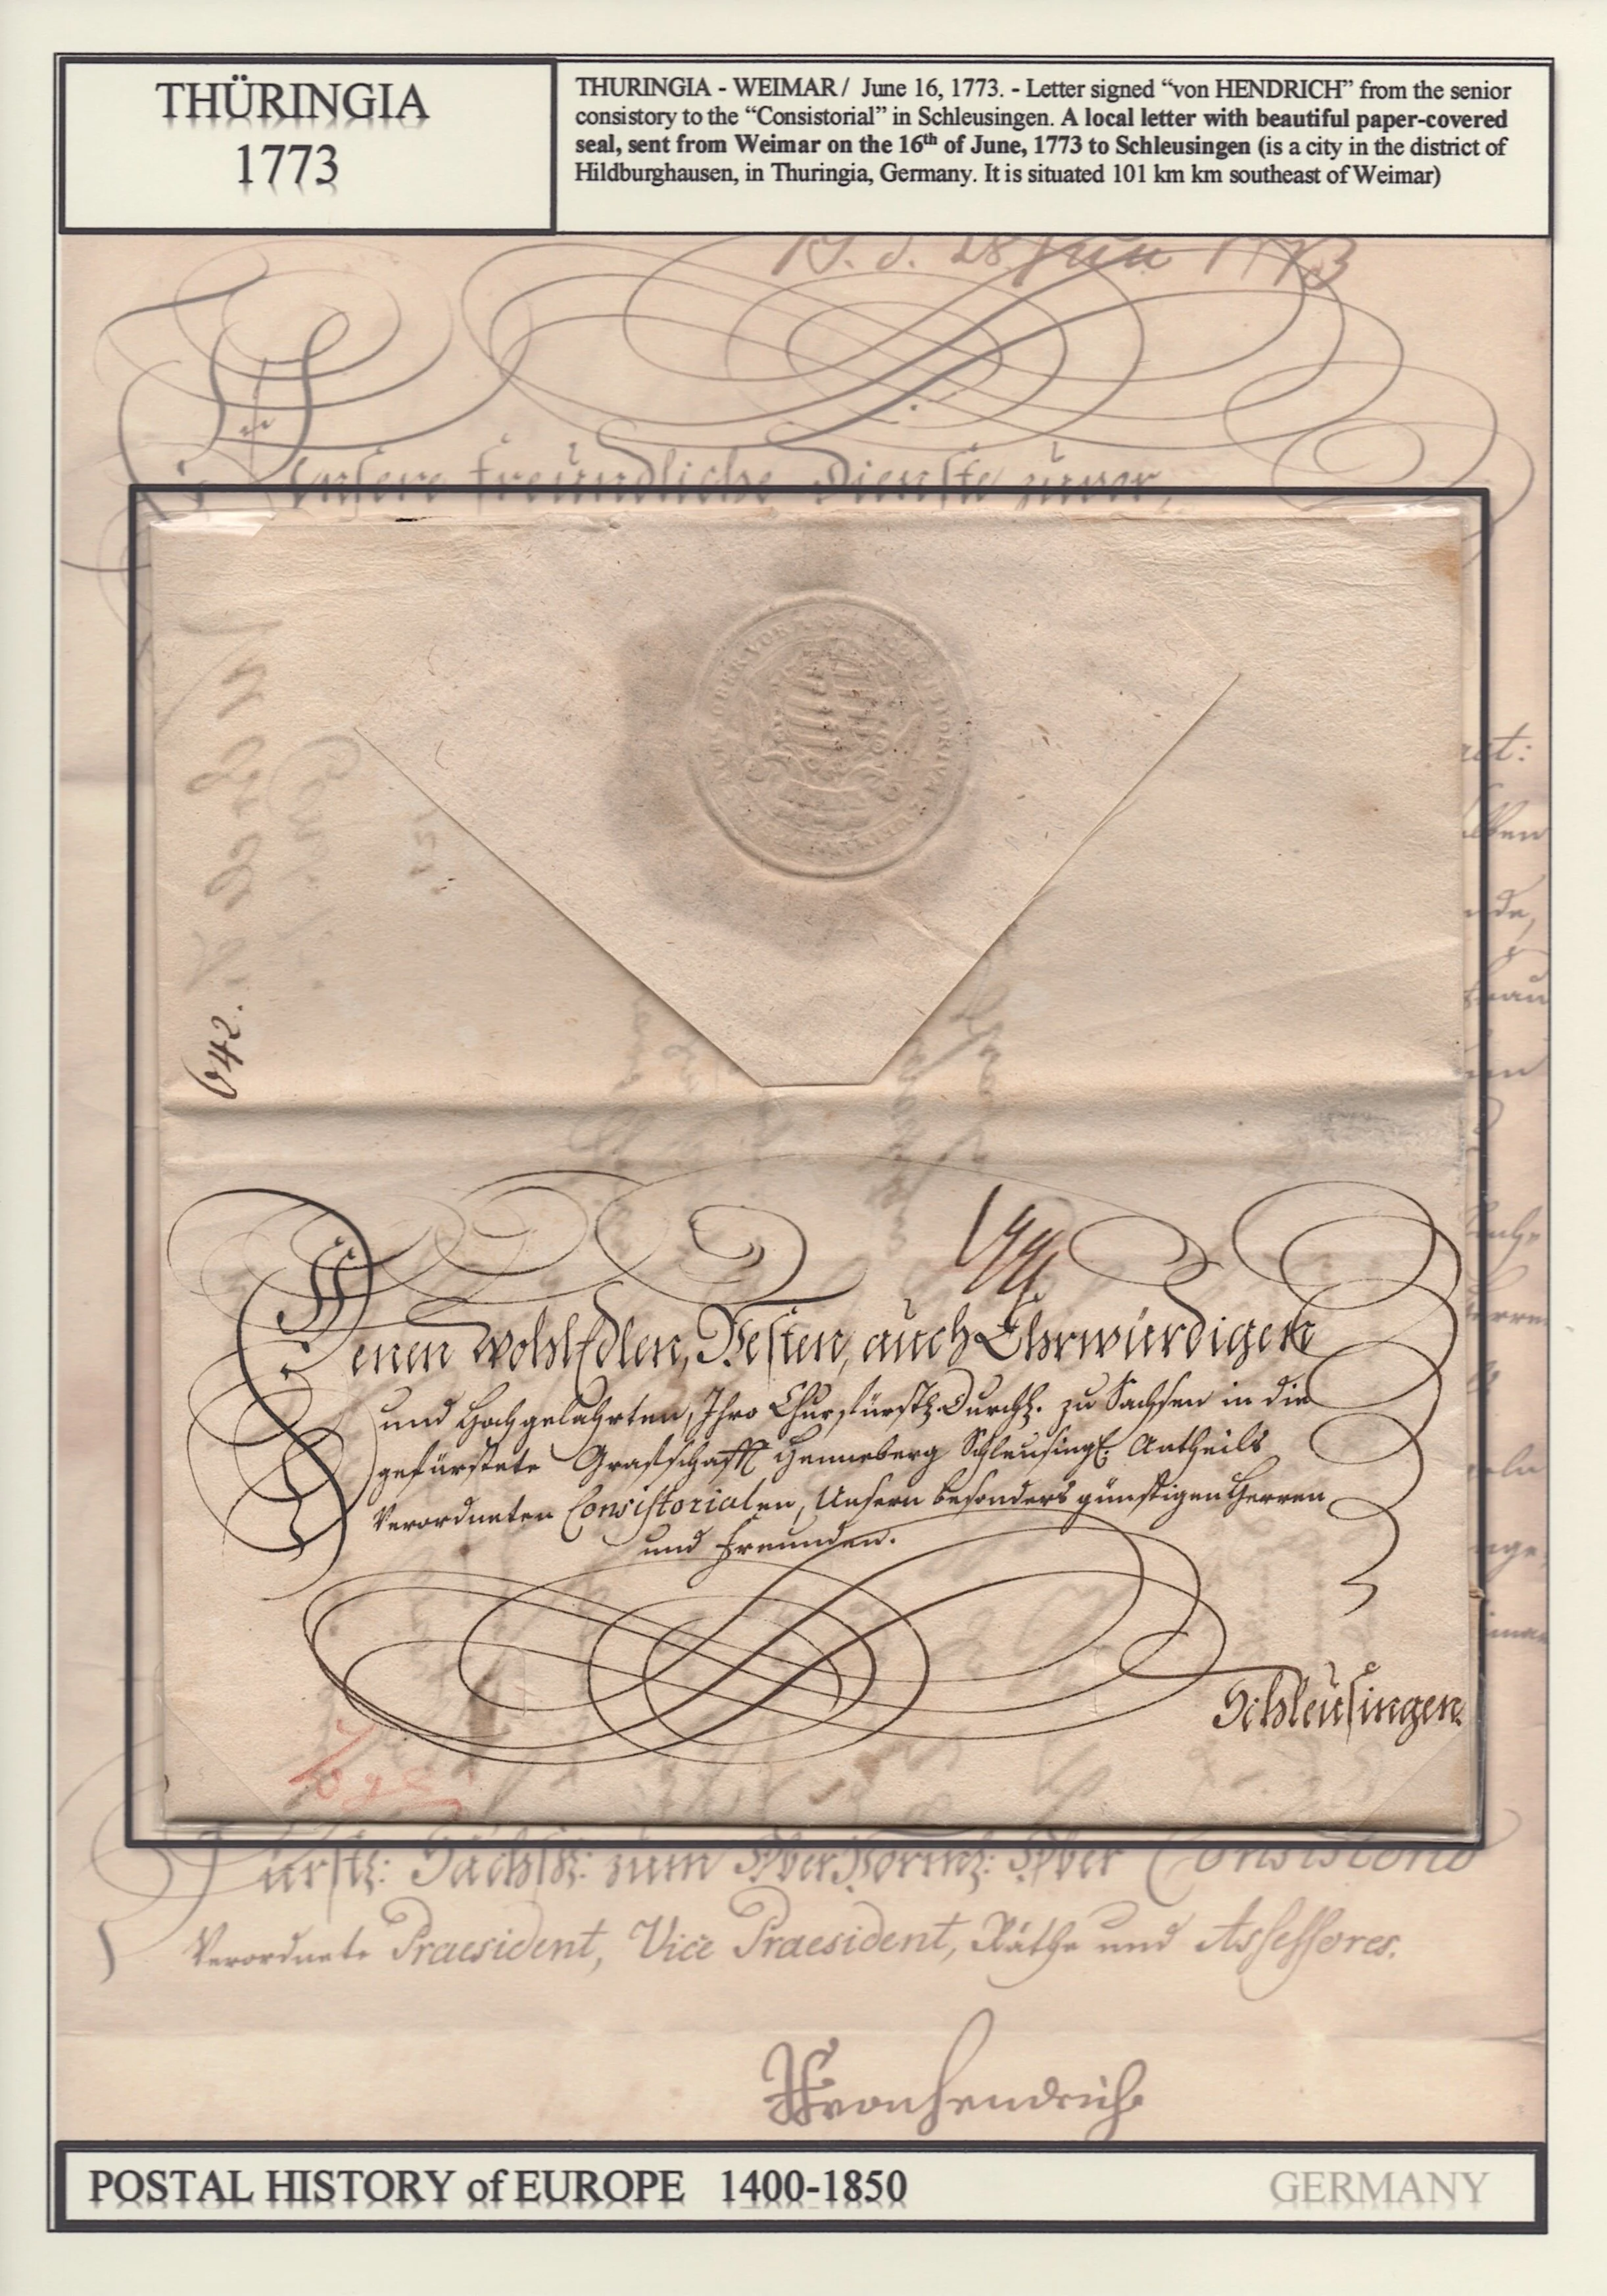 THÜRINGIA
1773
THURINGIA - WEIMAR / June 16, 1773. - Letter signed “von HENDRICH” from the senior
consistory to the “Consistorial” in Schleusingen. A local letter with beautiful paper-covered
seal, sent from Weimar on the 16th of June, 1773 to Schleusingen (is a city in the district of
Hildburghausen, in Thuringia, Germany. It is situated 101 km km southeast of Weimar)
28 Jun 1773
Unsere freundliche Dienste zuvor,
642.
Denen WohlEdlen, Vesten, auch Ehrwürdigen
und Hochgelahrten, Ihro Churfürstl. Durchl. zu Sachsen in die
gefürstete Grafschafft Henneberg Schleusingl. Antheils
Verordneten Consistorialen, Unsern besonders günstigen Herren
und Freunden.
Schleusingen.
Fürstl: Sächsl: zum Ober Consistorio
Verordnete Praesident, Vice Praesident, Räthe und Assessores.
von Hendrich
POSTAL HISTORY of EUROPE 1400-1850
GERMANY